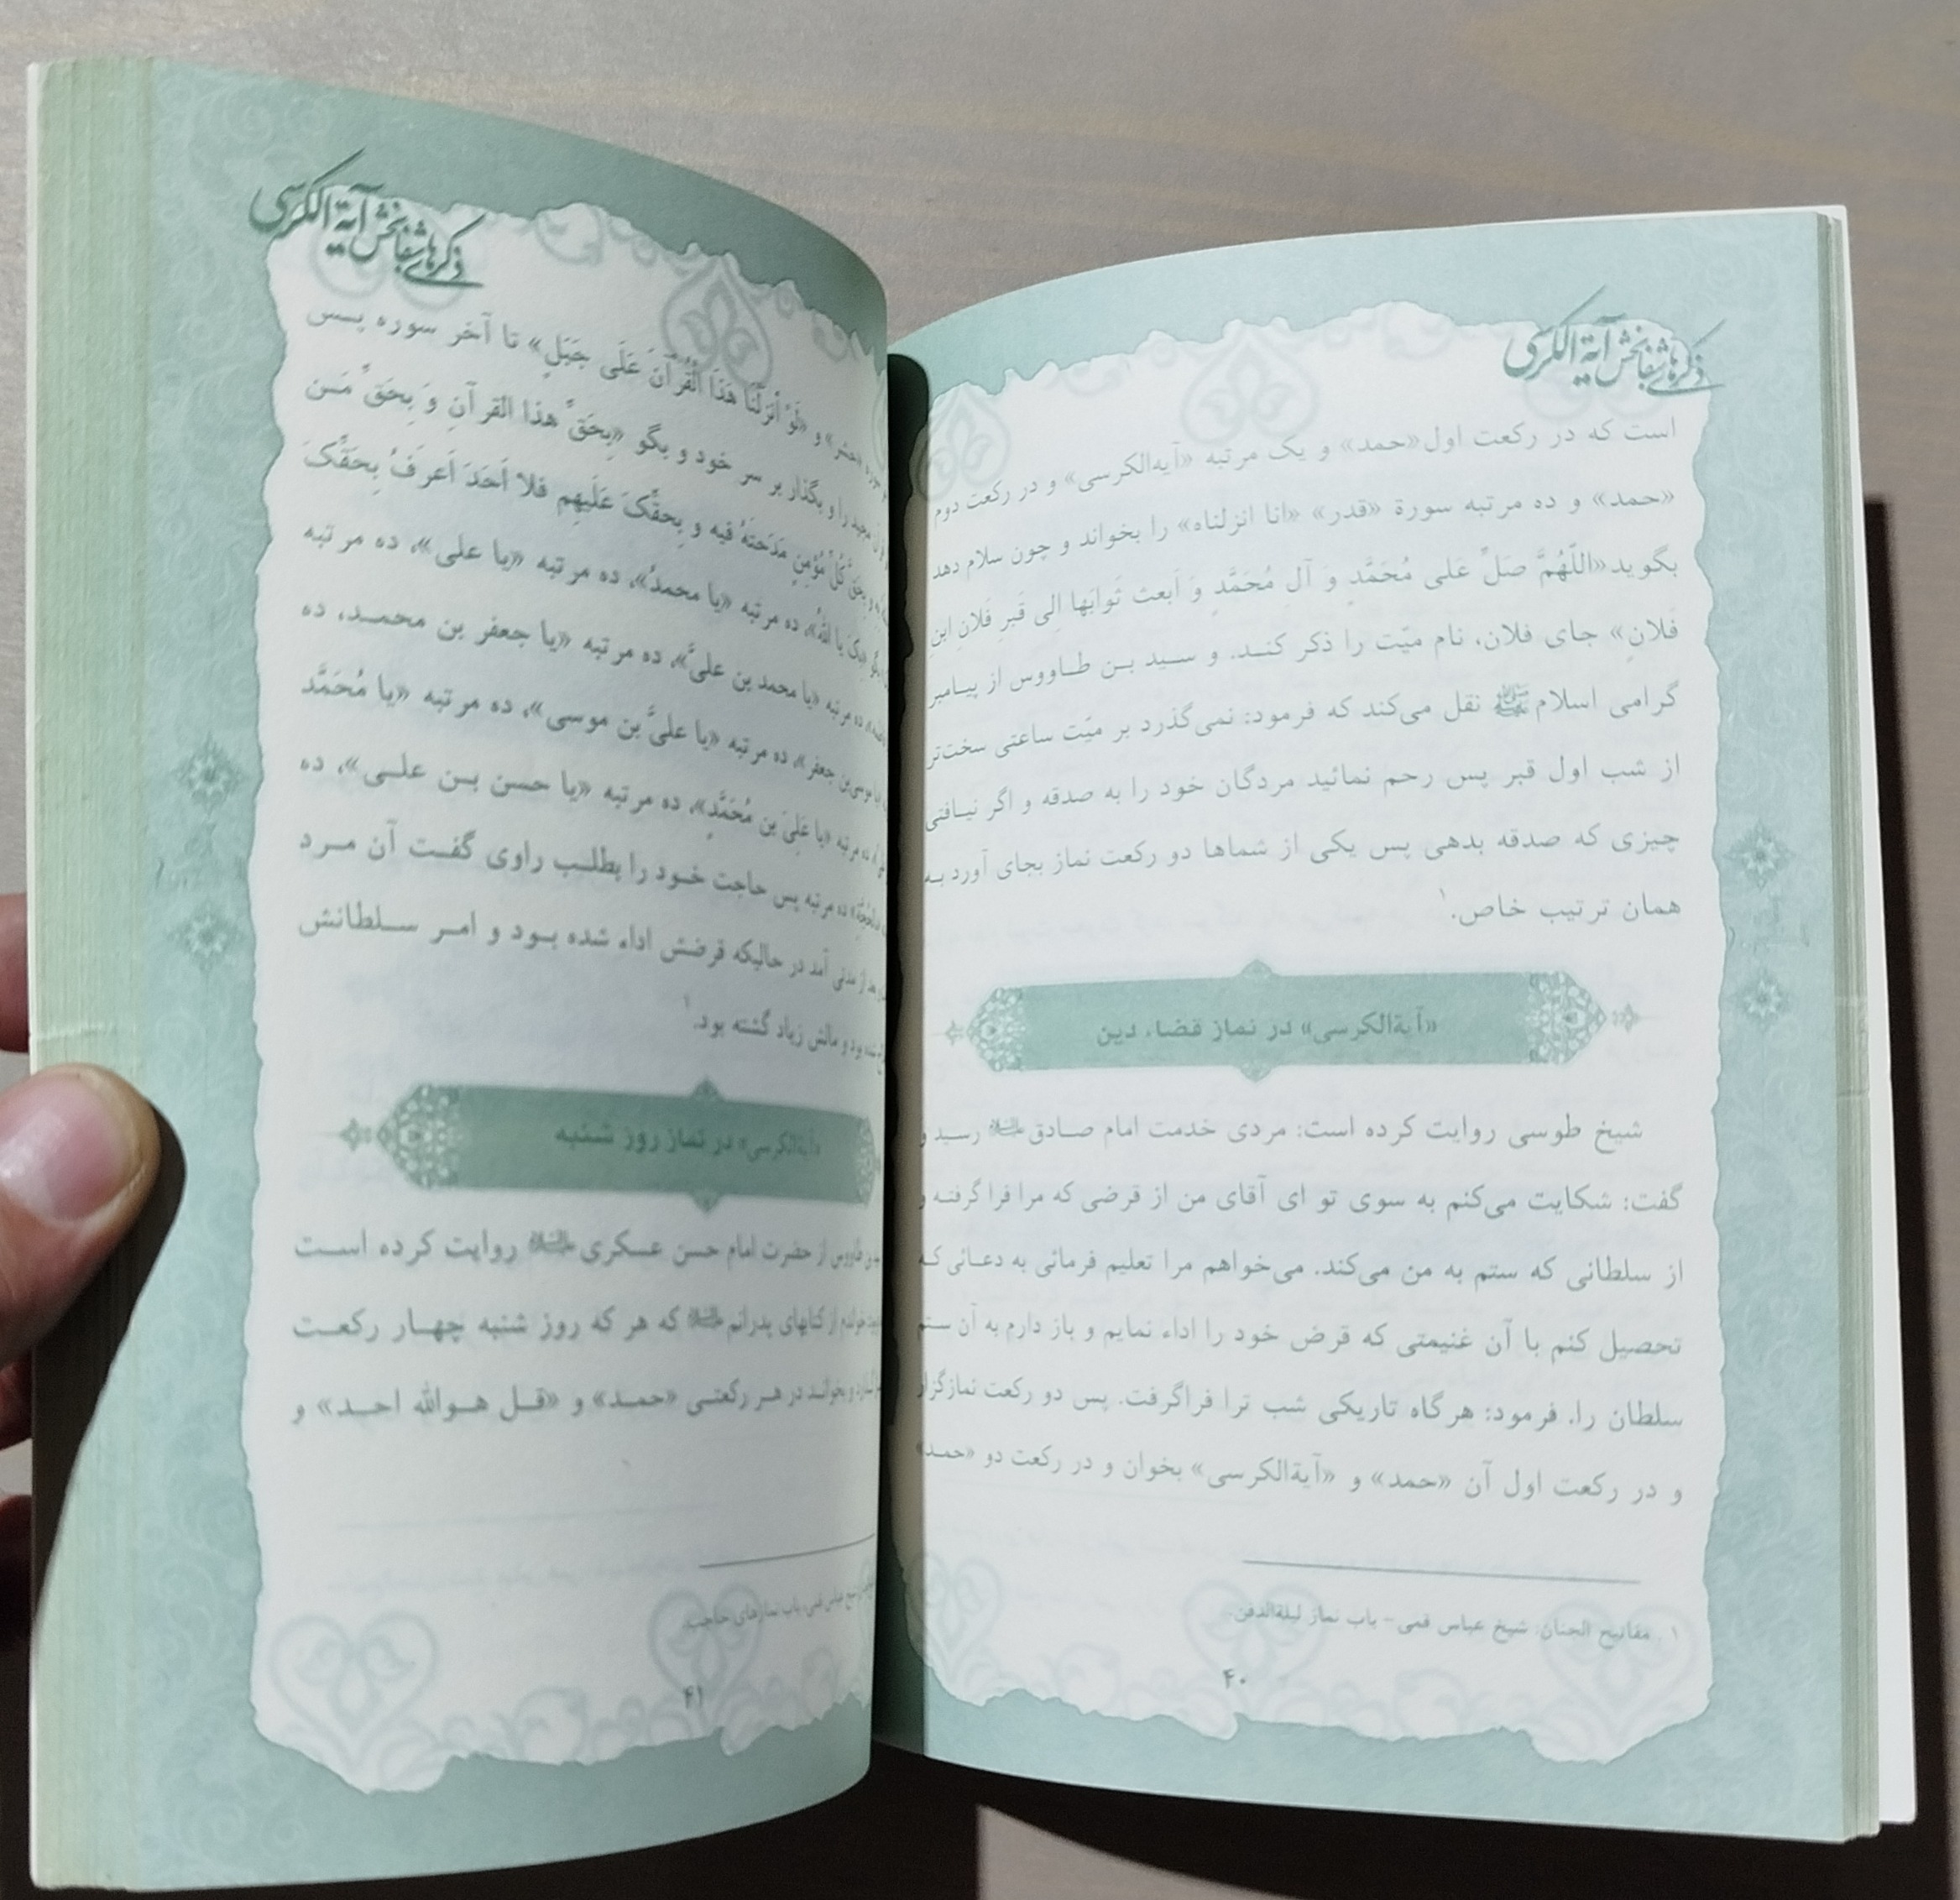 ذکرهای شفابخش آیة الکرسی
است که در رکعت اول «حمد» و یک مرتبه «آیه‌الکرسی» و در رکعت دوم
«حمد» و ده مرتبه سورة «قدر» «انا انزلناه» را بخواند و چون سلام دهد
بگوید «اللّهُمَّ صَلِّ عَلی مُحَمَّدٍ وَ آلِ مُحَمَّدٍ وَ اَبعث ثَوابَها اِلی قَبرِ فَلانِ ابنِ
فَلانٍ» جای فلان، نام میّت را ذکر کنـد. و سـید بـن طـاووس از پیـامبر
گرامی اسلام ﷺ نقل می‌کند که فرمود: نمی‌گذرد بر میّت ساعتی سخت‌تر
از شب اول قبر پس رحم نمائید مردگان خود را به صدقه و اگر نیـافتی
چیزی که صدقه بدهی پس یکی از شماها دو رکعت نماز بجای آورد بـه
همان ترتیب خاص.۱
«آیةالکرسی» در نماز قضاء دین
شیخ طوسی روایت کرده است: مردی خدمت امام صـادق رسـید و
گفت: شکایت می‌کنم به سوی تو ای آقای من از قرضی که مرا فرا گرفته و
از سلطانی که ستم به من می‌کند. می‌خواهم مرا تعلیم فرمائی به دعـائی کـه
تحصیل کنم با آن غنیمتی که قرض خود را اداء نمایم و باز دارم به آن ستم
سلطان را. فرمود: هرگاه تاریکی شب ترا فراگرفت. پس دو رکعت نمازگزار
و در رکعت اول آن «حمد» و «آیةالکرسی» بخوان و در رکعت دو «حمـد»
۱. مفاتیح الجنان: شیخ عباس قمی - باب نماز لیلةالدفن.
۴۰
ذکرهای شفابخش آیة الکرسی
«حشر» و «لَوْ أَنْزَلْنَا هَذَا الْقُرْآنَ عَلَى جَبَلٍ» تا آخر سوره پـس
مجید را و بگذار بر سر خود و بگو «بِحَقِّ هذا القرآنِ وَ بِحَقِّ مَـن
و بِحَقِّ کُلِّ مُؤْمِنٍ مَدَحتَهُ فیه و بِحقِّکَ عَلَیهِم فلا اَحَدَ اَعرَفُ بِحَقِّکَ
«بِکَ یا اللهُ»، ده مرتبه «یا محمدُ»، ده مرتبه «یا علی»، ده مرتبه
ده مرتبه «یا محمد بن علیّ»، ده مرتبه «یا جعفر بن محمـد، ده
موسی‌بن جعفر»، ده مرتبه «یا علیَّ بن موسی»، ده مرتبه «یا مُحَمَّد
ده مرتبه «یا عَلِیَّ بن مُحَمَّدٍ»، ده مرتبه «یا حسن بـن علـی»، ده
ده مرتبه پس حاجت خـود را بطلـب راوی گفـت آن مـرد
بعد از مدتی آمد در حالیکه قرضش اداء شده بـود و امـر سـلطانش
بود و مالش زیاد گشته بود.۱
«آیةالکرسی» در نماز روز شنبه
طاووس از حضرت امام حسن عسکری روایت کرده اسـت
خواندم از کتابهای پدرانم که هر که روز شنبه چهـار رکعـت
و بخوانـد در هـر رکعتـی «حمـد» و «قـل هـوالله احـد» و
شیخ عباس قمی، باب نمازهای حاجت.
۴۱